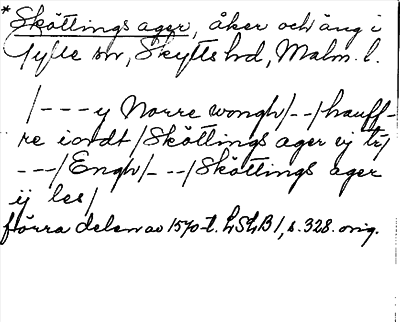 *Sköttings ager, åker och äng i
Gylle sn, Skytts hd, Malm. l.
/---y Norre wongh/--/hauff-
re iordt/Sköttings ager ij tr/
---/Engh/---/Sköttings ager
ij les/
förra delen av 1570-t. LSLB 1, s. 328. orig.